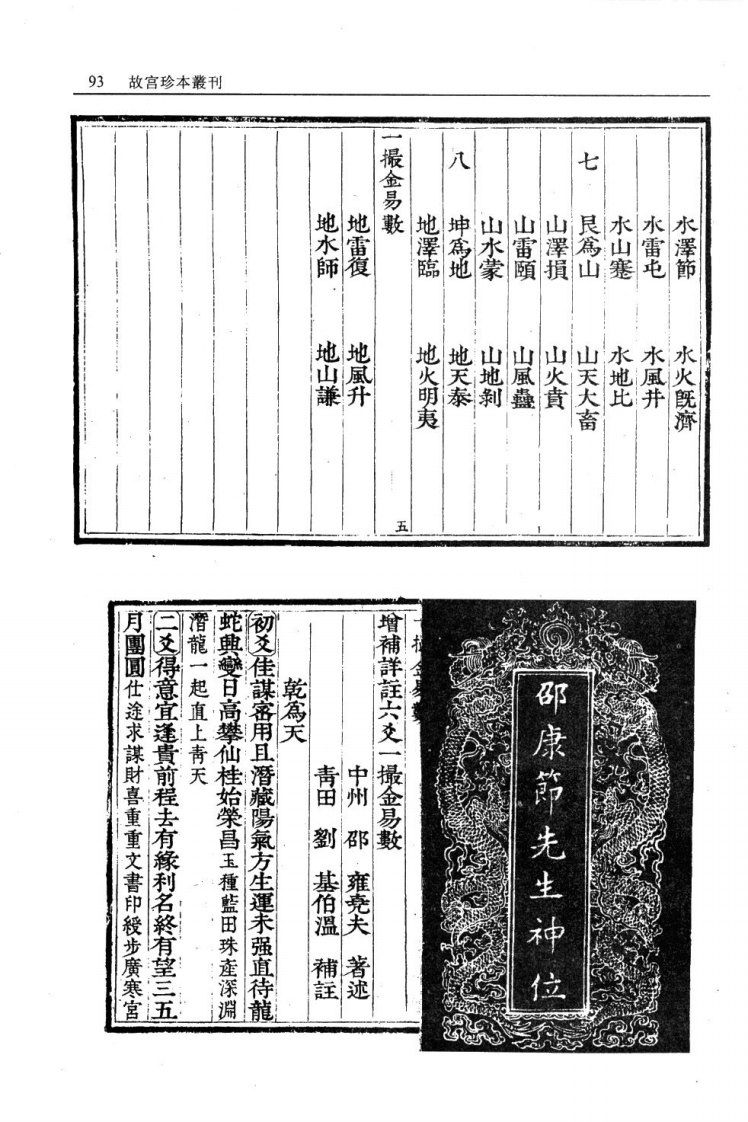 93 故宮珍本叢刊
水澤節 水火旣濟
水雷屯 水風井
水山蹇 水地比
七 艮爲山 山天大畜
山澤損 山火賁
山雷頤 山風蠱
山水蒙 山地剝
八 坤爲地 地天泰
地澤臨 地火明夷
一撮金易數 五
地雷復 地風升
地水師 地山謙
邵康節先生神位
一撮金易數
增補詳註六爻一撮金易數
中州 邵 雍堯夫 著述
靑田 劉 基伯溫 補註
乾爲天
初爻佳謀密用且潛藏陽氣方生運未强直待龍
蛇興變日高攀仙桂始榮昌玉種藍田珠產深淵
潛龍一起直上靑天
二爻得意宜逢貴前程去有緣利名終有望三五
月團圓仕途求謀財喜重重文書印綬步廣寒宮